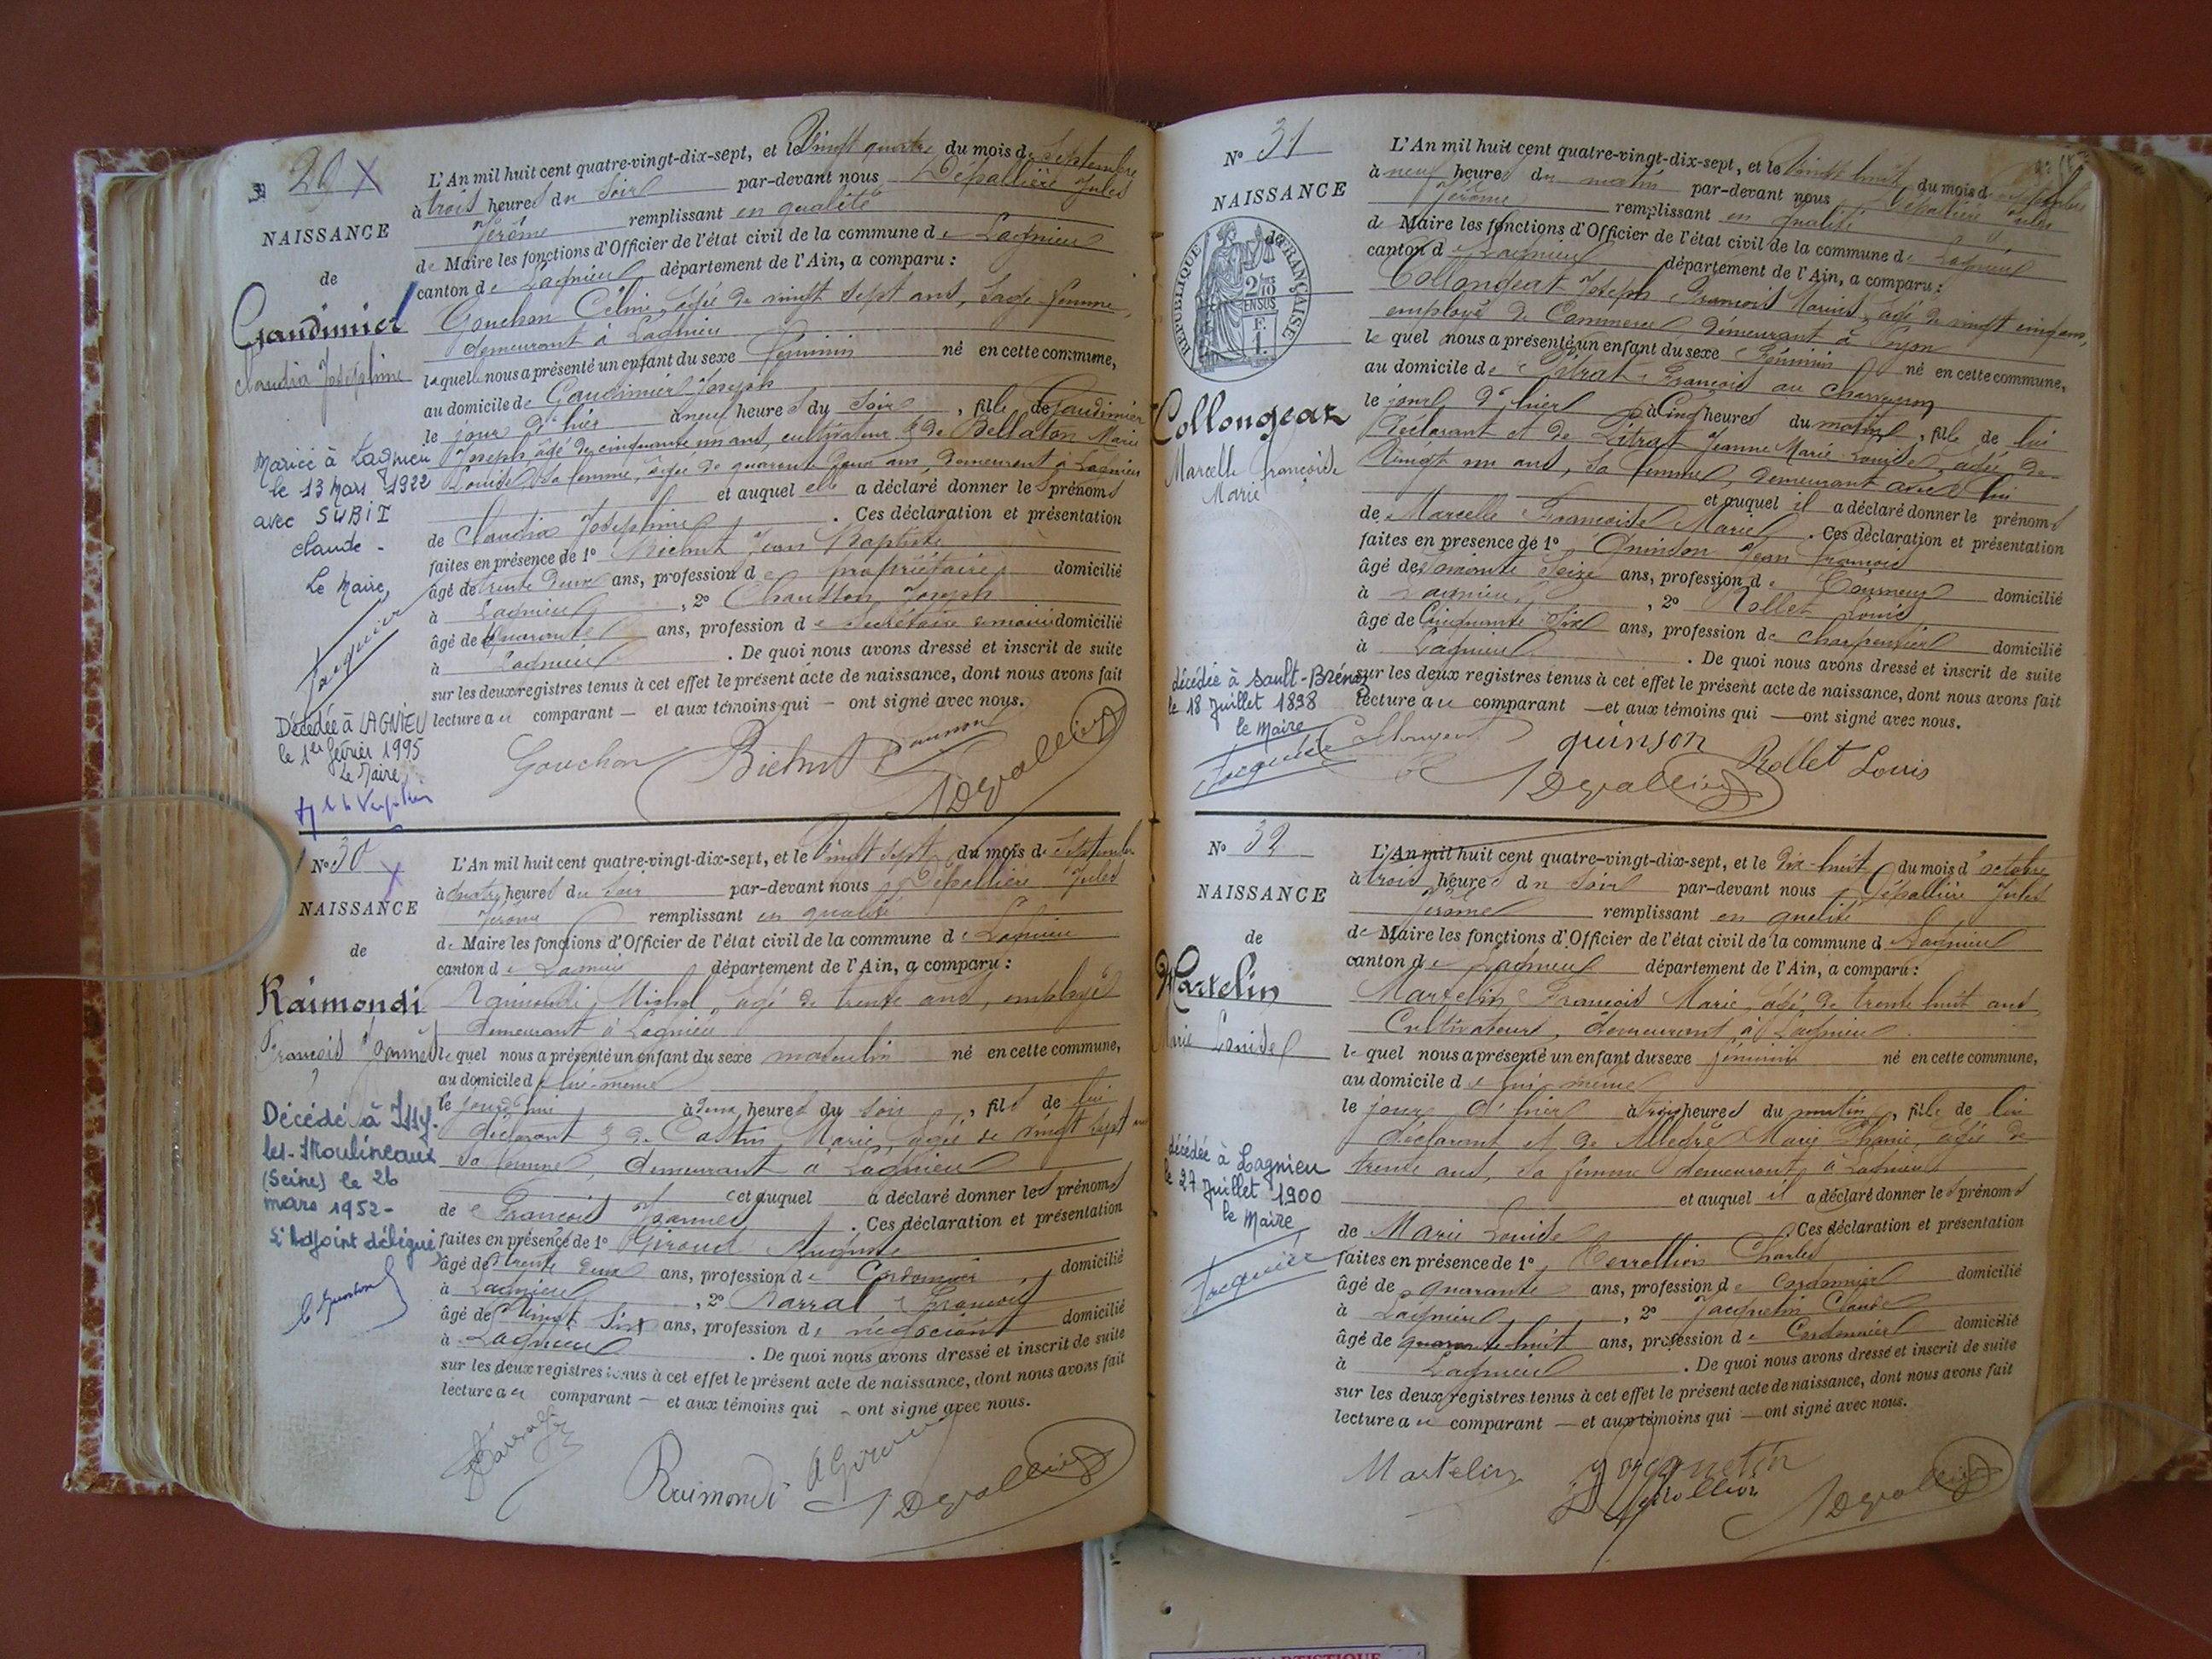 29 X
NAISSANCE
de
Gaudimier
Claudia Joséphine
Mariée à Lagnieu
le 13 Mars 1922
avec SUBIT
Claude -
Le Maire,
Jacquier
Décédée à LAGNIEU
le 1er février 1995
Le Maire,
L'An mil huit cent quatre-vingt-dix-sept, et le Vingt quatre du mois de septembre
à trois heures du soir par-devant nous Dépallière Jules
Jérôme remplissant en qualité
de Maire les fonctions d'Officier de l'état civil de la commune de Lagnieu
canton de Lagnieu département de l'Ain, a comparu :
Gouchon Céline, âgée de vingt sept ans, Sage femme,
demeurant à Lagnieu
laquelle nous a présenté un enfant du sexe féminin né en cette commune,
au domicile de Gaudimier Joseph
le jour d'hier à neuf heures du soir, fille de Gaudimier
Joseph âgé de cinquante un ans, cultivateur & de Bellaton Marie
Louise, sa femme, âgée de quarante deux ans, demeurant à Lagnieu
et auquel elle a déclaré donner les prénoms
de Claudia Joséphine . Ces déclaration et présentation
faites en présence de 1° Jean Baptiste
âgé de trente deux ans, profession de propriétaire domicilié
à Lagnieu, 2° Joseph
âgé de quarante ans, profession de Secrétaire de mairie domicilié
à Lagnieu . De quoi nous avons dressé et inscrit de suite
sur les deux registres tenus à cet effet le présent acte de naissance, dont nous avons fait
lecture au comparant — et aux témoins qui — ont signé avec nous.
Gouchon
Depallière
N° 30 X
NAISSANCE
de
Raimondi
François Joannes
Décédé à Issy-
les-Moulineaux
(Seine) le 26
mars 1952-
L'Adjoint délégué
L'An mil huit cent quatre-vingt-dix-sept, et le Vingt sept du mois de septembre
à quatre heures du soir par-devant nous Dépallière Jules
Jérôme remplissant en qualité
de Maire les fonctions d'Officier de l'état civil de la commune de Lagnieu
canton de Lagnieu département de l'Ain, a comparu :
Raimondi, Michel, âgé de trente ans, employé
demeurant à Lagnieu
lequel nous a présenté un enfant du sexe masculin né en cette commune,
au domicile de lui-même
le jour d'hui à deux heures du soir, fils de lui
déclarant & de Castin Marie, âgée de vingt sept ans
sa femme, demeurant à Lagnieu
et auquel a déclaré donner les prénoms
de François Joannes . Ces déclaration et présentation
faites en présence de 1° Giroud Auguste
âgé de trente deux ans, profession de Cordonnier domicilié
à Lagnieu, 2° Barral François
âgé de Vingt six ans, profession de négociant domicilié
à Lagnieu . De quoi nous avons dressé et inscrit de suite
sur les deux registres tenus à cet effet le présent acte de naissance, dont nous avons fait
lecture au comparant — et aux témoins qui - ont signé avec nous.
Barral
Raimondi A Giroud
Depallière
N° 31
NAISSANCE
de
RÉPUBLIQUE FRANÇAISE
2/10 EN SUS
Collongeat
Marcelle Françoise
Marie
décédée à Sault-Brénaz
le 18 Juillet 1898
le Maire
Jacquier
L'An mil huit cent quatre-vingt-dix-sept, et le Vingt huit du mois de septembre
à neuf heures du matin par-devant nous Dépallière Jules
Jérôme remplissant en qualité
de Maire les fonctions d'Officier de l'état civil de la commune de Lagnieu
canton de Lagnieu département de l'Ain, a comparu :
Collongeat Joseph François Marius, âgé de vingt cinq ans,
employé de Commerce demeurant à Lyon
lequel nous a présenté un enfant du sexe féminin né en cette commune,
au domicile de Litrat François au
le jour d'hier à Cinq heures du matin, fille de lui
déclarant et de Litrat Jeanne Marie Louise, âgée de
Vingt un ans, sa femme, demeurant avec lui
et auquel il a déclaré donner le prénoms
de Marcelle Françoise Marie . Ces déclaration et présentation
faites en présence de 1° Quinson Jean François
âgé de soixante seize ans, profession de Tourneur domicilié
à Lagnieu, 2° Rollet Louis
âgé de Cinquante six ans, profession de charpentier domicilié
à Lagnieu . De quoi nous avons dressé et inscrit de suite
sur les deux registres tenus à cet effet le présent acte de naissance, dont nous avons fait
lecture au comparant —et aux témoins qui —ont signé avec nous.
Collongeat quinson Rollet Louis
Depallière
N° 32
NAISSANCE
de
Martelin
Marie Louise
décédée à Lagnieu
le 27 Juillet 1900
le Maire
Jacquier
L'An mil huit cent quatre-vingt-dix-sept, et le dix-huit du mois d'octobre
à trois heures du soir par-devant nous Dépallière Jules
Jérôme remplissant en qualité
de Maire les fonctions d'Officier de l'état civil de la commune d Lagnieu
canton de Lagnieu département de l'Ain, a comparu :
Martelin François Marie, âgé de trente huit ans
Cultivateur, demeurant à Lagnieu
lequel nous a présenté un enfant du sexe féminin né en cette commune,
au domicile de lui même
le jour d'hier à trois heures du matin, fille de lui
déclarant et de Allegré Marie Phanie, âgée de
trente ans, sa femme demeurant à Lagnieu
et auquel il a déclaré donner les prénoms
de Marie Louise Ces déclaration et présentation
faites en présence de 1° Terrollion Charles
âgé de quarante ans, profession de cordonnier domicilié
à Lagnieu, 2° Jacquetin Claude
âgé de quarante huit ans, profession de Cordonnier domicilié
à Lagnieu . De quoi nous avons dressé et inscrit de suite
sur les deux registres tenus à cet effet le présent acte de naissance, dont nous avons fait
lecture au comparant — et aux témoins qui — ont signé avec nous.
Martelin Jacquetin
Terrollion Depallière